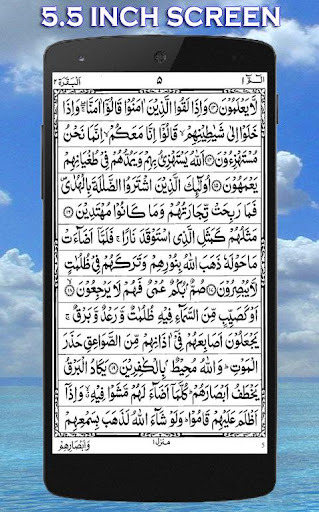 5.5 INCH SCREEN
البقرة ٢
٥
الٓمّٓ ١
لَا يَعْلَمُوْنَ ۝۱۳ وَاِذَا لَقُوا الَّذِيْنَ اٰمَنُوْا قَالُوْٓا اٰمَنَّا ۚ وَاِذَا
خَلَوْا اِلٰى شَيٰطِيْنِهِمْ ۙ قَالُوْٓا اِنَّا مَعَكُمْ ۙ اِنَّمَا نَحْنُ
مُسْتَهْزِءُوْنَ ۝۱۴ اَللّٰهُ يَسْتَهْزِئُ بِهِمْ وَيَمُدُّهُمْ فِيْ طُغْيَانِهِمْ
يَعْمَهُوْنَ ۝۱۵ اُولٰٓئِكَ الَّذِيْنَ اشْتَرَوُا الضَّلٰلَةَ بِالْهُدٰى ۪
فَمَا رَبِحَتْ تِّجَارَتُهُمْ وَمَا كَانُوْا مُهْتَدِيْنَ ۝۱۶
مَثَلُهُمْ كَمَثَلِ الَّذِي اسْتَوْقَدَ نَارًا ۚ فَلَمَّآ اَضَآءَتْ
مَا حَوْلَهٗ ذَهَبَ اللّٰهُ بِنُوْرِهِمْ وَتَرَكَهُمْ فِيْ ظُلُمٰتٍ
لَّا يُبْصِرُوْنَ ۝۱۷ صُمٌّۢ بُكْمٌ عُمْيٌ فَهُمْ لَا يَرْجِعُوْنَ ۝۱۸
اَوْ كَصَيِّبٍ مِّنَ السَّمَآءِ فِيْهِ ظُلُمٰتٌ وَّرَعْدٌ وَّبَرْقٌ ۚ
يَجْعَلُوْنَ اَصَابِعَهُمْ فِيْٓ اٰذَانِهِمْ مِّنَ الصَّوَاعِقِ حَذَرَ
الْمَوْتِ ؕ وَاللّٰهُ مُحِيْطٌۢ بِالْكٰفِرِيْنَ ۝۱۹ يَكَادُ الْبَرْقُ
يَخْطَفُ اَبْصَارَهُمْ ؕ كُلَّمَآ اَضَآءَ لَهُمْ مَّشَوْا فِيْهِ ۙ وَاِذَآ
اَظْلَمَ عَلَيْهِمْ قَامُوْا ؕ وَلَوْ شَآءَ اللّٰهُ لَذَهَبَ بِسَمْعِهِمْ
وَاَبْصَارِهِمْ
منزل ۱
5